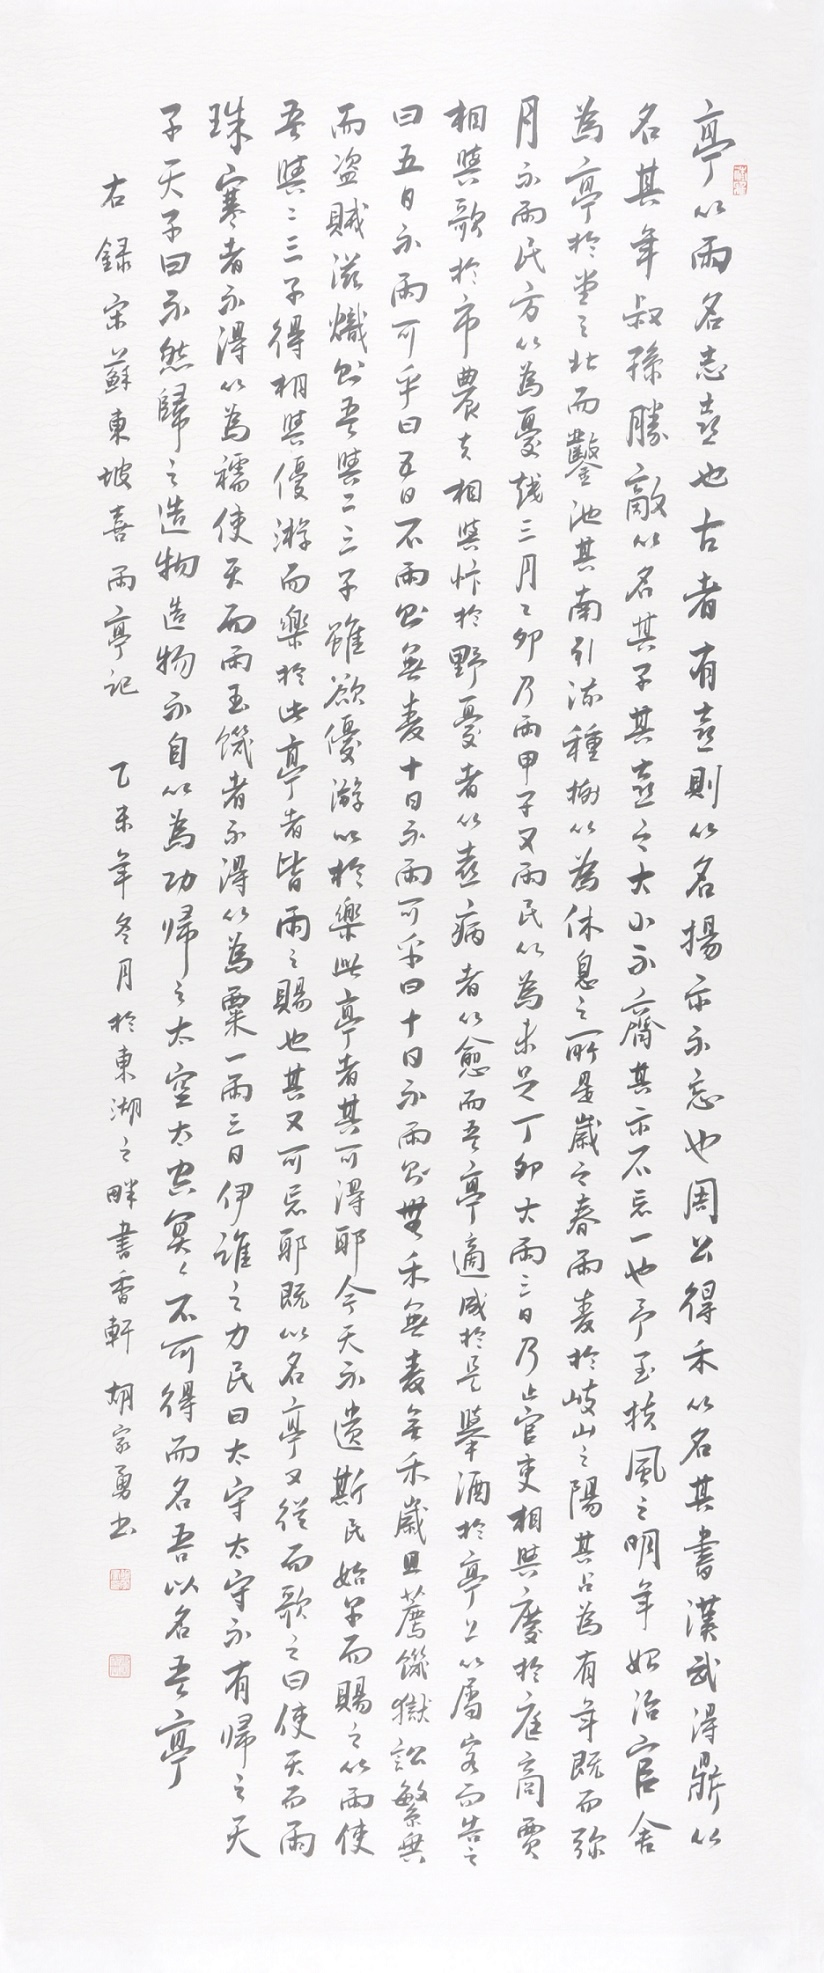 亭以雨名志喜也古者有喜則以名揚示不忘也周公得禾以名其書漢武得鼎以
名其年叔孫勝敵以名其子其喜之大小不齊其示不忘一也予至扶風之明年始治官舍
為亭於堂之北而鑿池其南引流種樹以為休息之所是歲之春雨麦於岐山之陽其占為有年既而弥
月不雨民方以為憂越三月乙卯乃雨甲子又雨民以為未足丁卯大雨三日乃止官吏相與慶於庭商賈
相與歌於市農夫相與忭於野憂者以喜病者以愈而吾亭適成於是舉酒於亭上以属客而告之
曰五日不雨可乎曰五日不雨則無麦十日不雨可乎曰十日不雨則無禾無麦無禾歲且薦饑獄訟繁興
而盗賊滋熾則吾與二三子雖欲優游以於樂此亭者其可得耶今天不遺斯民始旱而賜之以雨使
吾與二三子得相與優游而樂於此亭者皆雨之賜也其又可忘耶既以名亭又從而歌之曰使天而雨
珠寒者不得以為襦使天而雨玉饑者不得以為粟一雨三日伊誰之力民曰太守太守不有帰之天
子天子曰不然歸之造物造物不自以為功帰之太空太空冥冥不可得而名吾以名吾亭
右録宋蘇東坡喜雨亭記 乙未年冬月於東湖之畔書香軒 胡家勇书